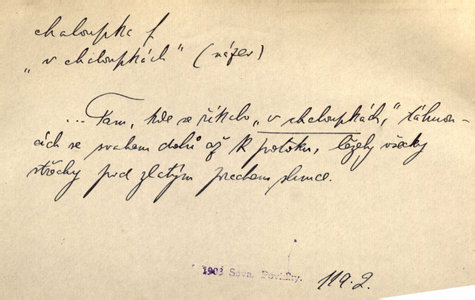 chaloupka f.
„v chaloupkách" (název)
... Tam, kde se říkalo „v chaloupkách," táhnou-
cích se svahem dolů až k potoku, ležely všecky
střechy pod zlatým prachem slunce.
1903 Sova, Povídky. 119.2.